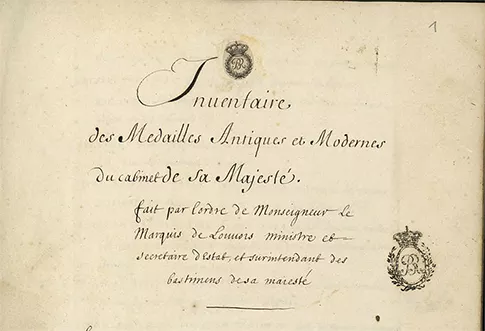 1
BR
Inventaire
des Medailles Antiques et Modernes
du cabinet de sa Majesté.
fait par l'ordre de Monseigneur Le
Marquis de Louvois ministre et
secretaire d'Estat, et surintendant des
bastimens de sa maiesté
BR